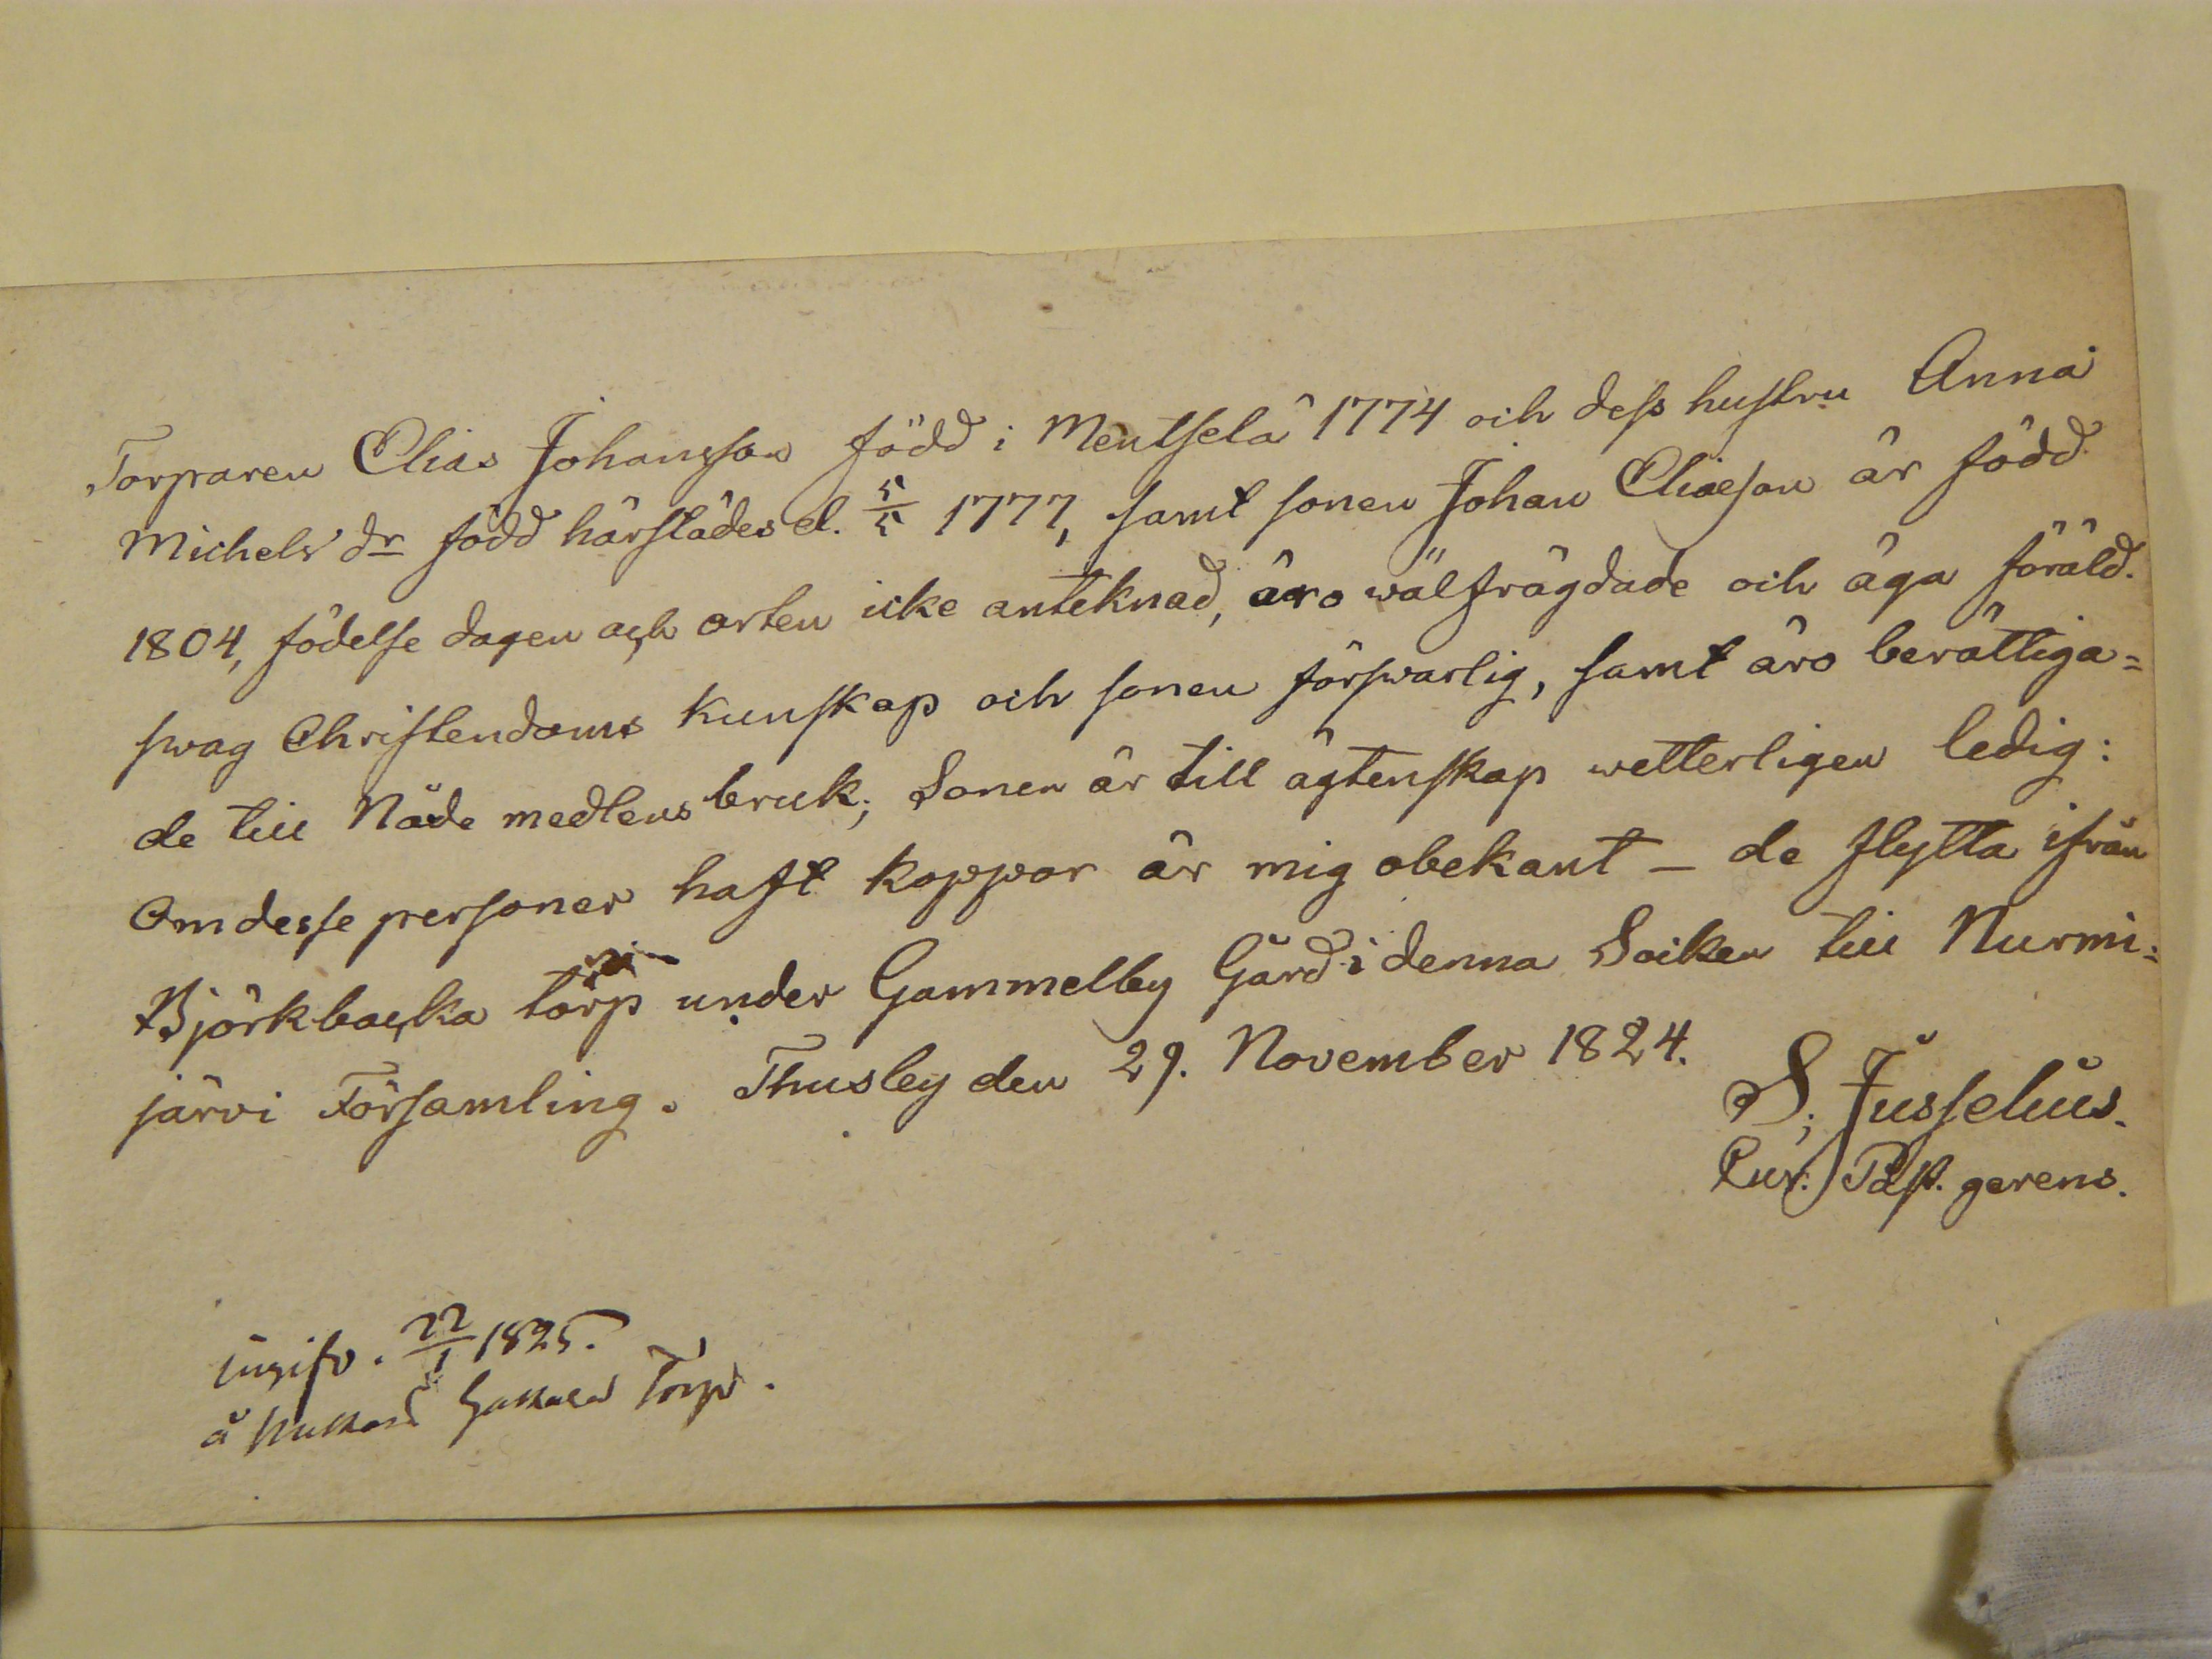 Torparen Elias Johansson född i Mentselä 1774 och dess hustru Anna
Michels dr född härstädes d. 5/5 1777, samt sonen Johan Eliaeson är född
1804, födelse dagen och orten icke anteknad, äro wälfrägdade och äga föräld.
swag Christendoms kunskap och sonen förswarlig, samt äro berättiga=
de till Nåde medlens bruk; Sonen är till ägtenskap wetterligen ledig:
Om desse personer haft koppor är mig obekant – de flytta ifrån
Björkbacka torp under Gammelby Gård i denna Socken till Nurmi=
järvi Församling. Thusby den 29. November 1824.
S. Jusselius.
Cur. Past. gerens.
ingifv. 22/1 1825.
å Torp.